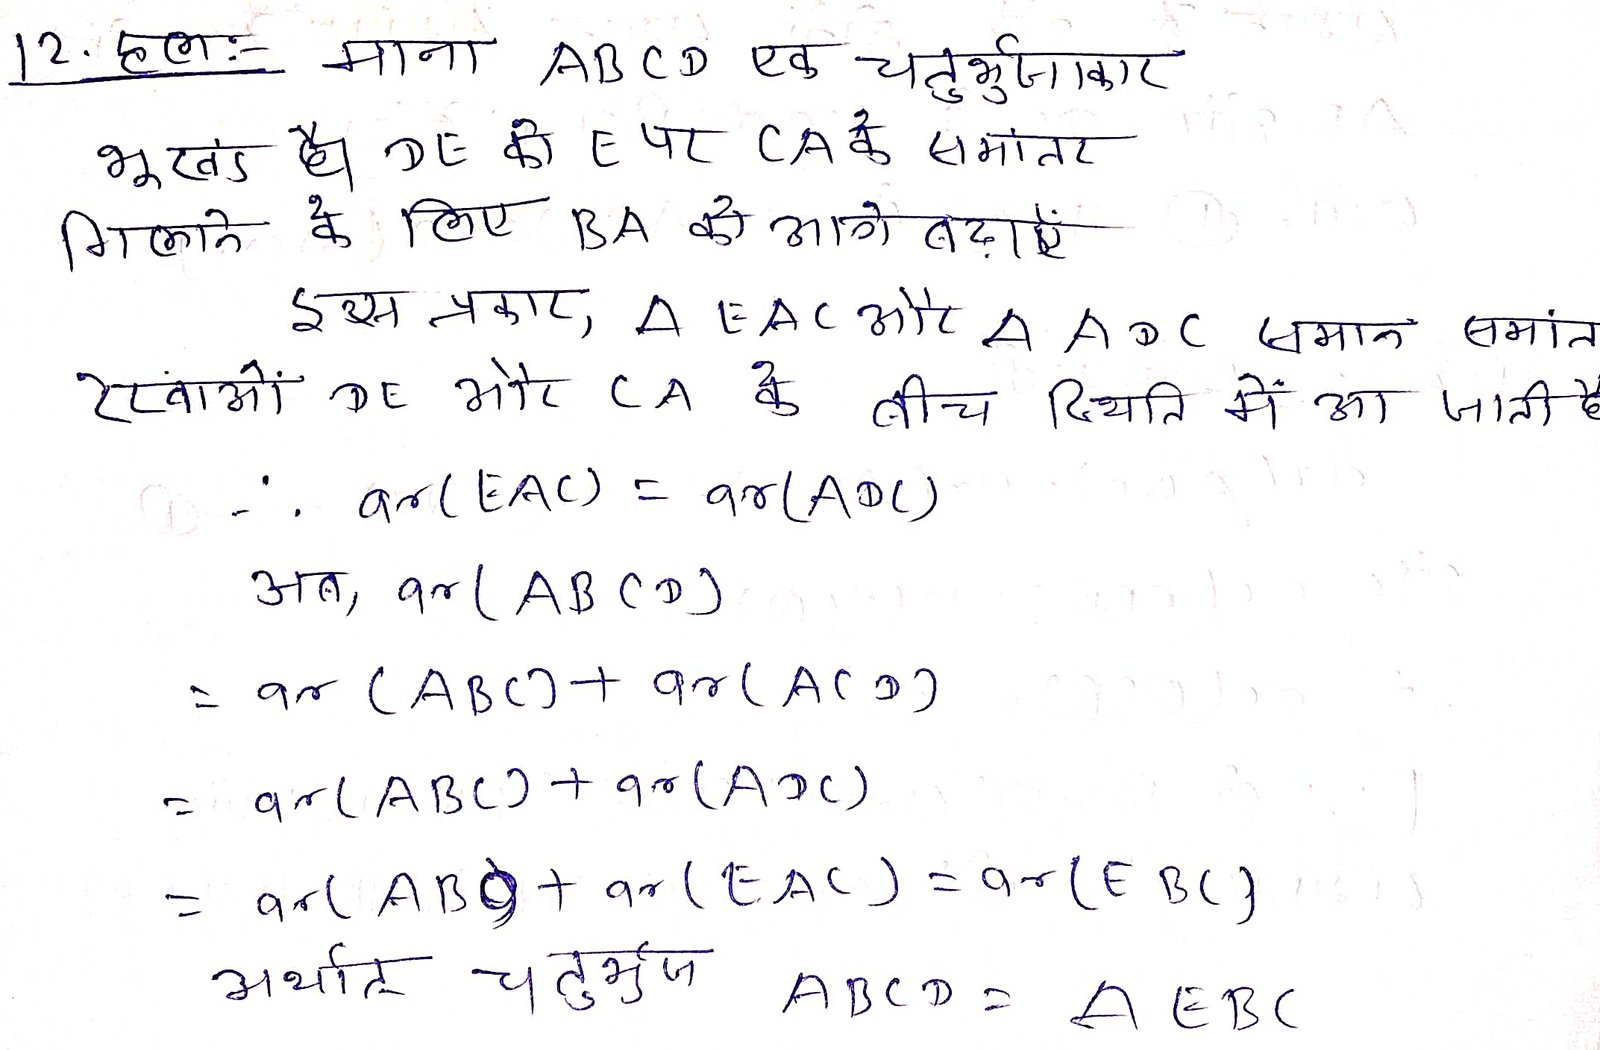 12. हलः- माना ABCD एक चतुर्भुजाकार
भूखंड है। DE को E पर CA के समांतर
मिलाने के लिए BA को आगे बढ़ाएं
इस प्रकार, Δ EAC और Δ ADC समान समांत
रेखाओं DE और CA के बीच स्थिति में आ जाती है
∴ ar(EAC) = ar(ADC)
अत, ar(ABCD)
= ar (ABC) + ar(ACD)
= ar(ABC) + ar(ADC)
= ar(ABC) + ar(EAC) = ar(EBC)
अर्थात् चतुर्भुज ABCD = Δ EBC